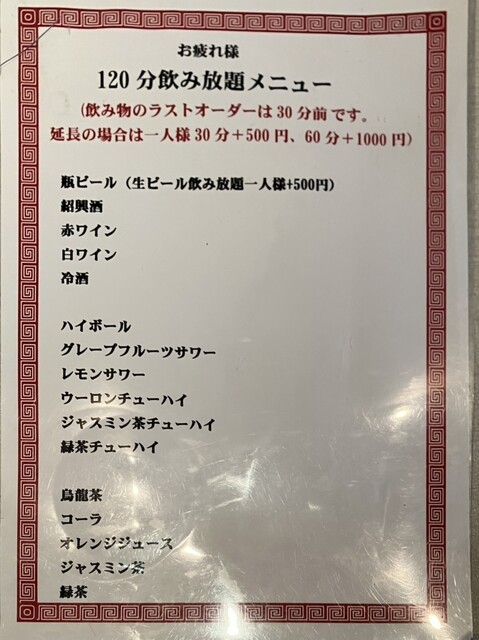 お疲れ様
120分飲み放題メニュー
(飲み物のラストオーダーは30分前です。
延長の場合は一人様30分＋500円、60分＋1000円)
瓶ビール（生ビール飲み放題一人様+500円）
紹興酒
赤ワイン
白ワイン
冷酒
ハイボール
グレープフルーツサワー
レモンサワー
ウーロンチューハイ
ジャスミン茶チューハイ
緑茶チューハイ
烏龍茶
コーラ
オレンジジュース
ジャスミン茶
緑茶